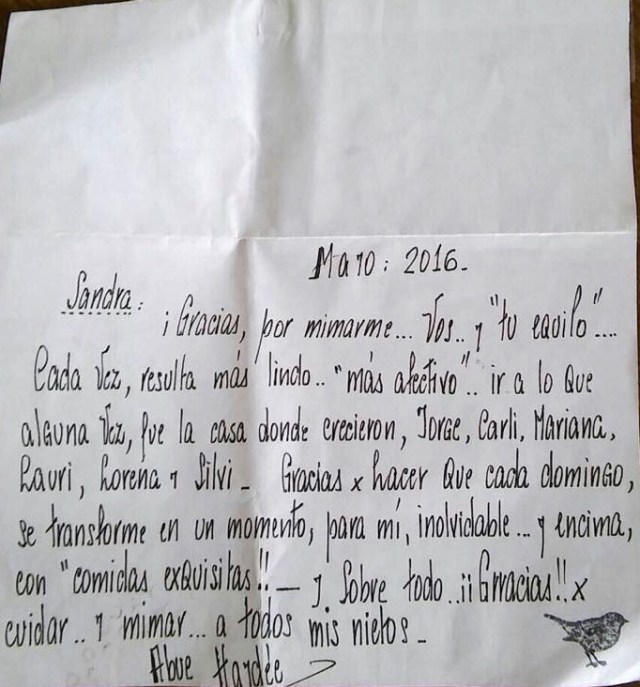 Mayo: 2016.-
Sandra:
¡Gracias, por mimarme... Vos.. y "tu equipo"....
Cada Vez, resulta más lindo.. "más afectivo".. ir a lo que
alguna Vez, fue la casa donde crecieron, Jorge, Carli, Mariana,
Lauri, Lorena y Silvi - Gracias x hacer que cada domingo,
se transforme en un momento, para mí, inolvidable... y encima,
con "comidas exquisitas!! — Y Sobre todo..¡¡Grracias!! x
cuidar.. y mimar... a todos mis nietos -
Abue Haydée